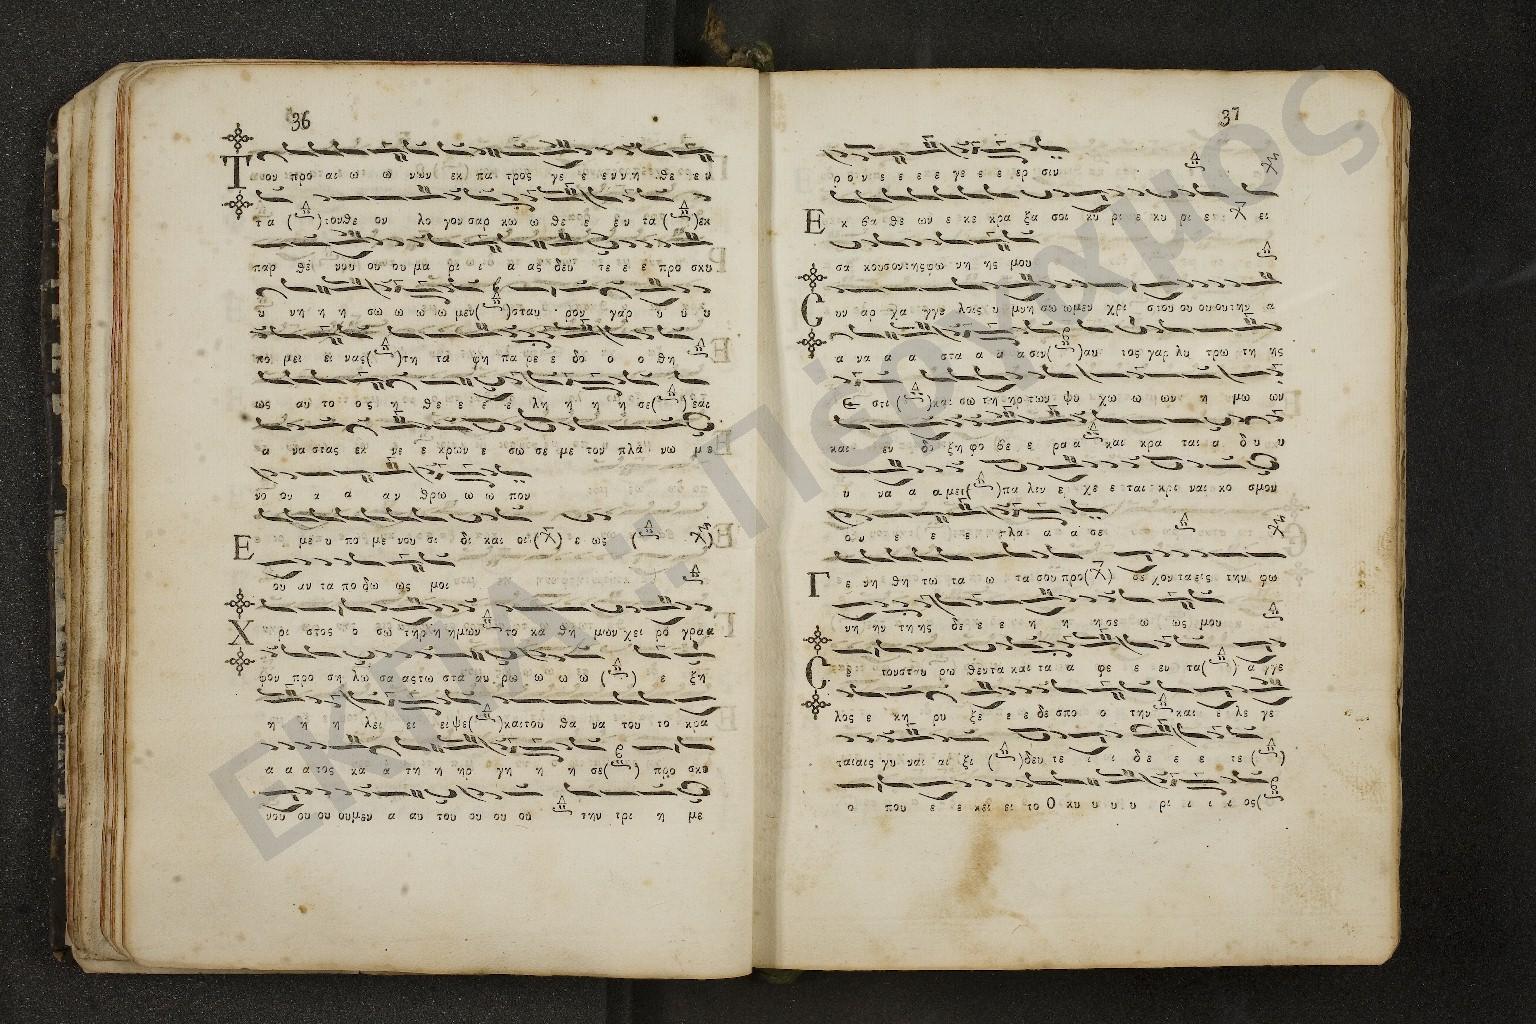 36
Τ ουν προ αι ω ω νων εκ πα τρος γε ε εννη θε εν
τα ( )τουθε ου λο γουσαρ κω ω θε ε εν τα ( )εκ
παρ θε νου ου ου μα ρι ι α ας δευ τε ε ε προ σκυ
υ νη η η σω ω ω ω μεν( )σταυ ρον γαρ υ υ υ
πο μει ει νας( )τη τα φη πα ρε ε δο ο ο θη
ως αυ το ος η θε ε ε ε λη η η η σε( ) εαι
α να στας εκ νε ε κρων ε σω σε με τον πλα νω με
νο ον α α αν θρω ω ω πον
Ε με υ πο με νου σι δι και οι( ) ε ως (
ου αν τα πο δω ως μοι
Χ ρι στος ο σω τηρ η ημων το κα θη μων χει ρο γραα
φον προ ση λω σα αςτω στα αυ ρω ω ω ω ( ) ε ξη
η η η λει ει ειψε( )καιτου θα να του το κρα
α α α τος κα α τη η ηρ γη η η σε( ) προ σκυ
νου ου ου ουμεν α αυ του ου ου ου την τρι η με
37
ο ο ν ε ε ε ε γε ε ε ερ σιν
Ε κ βα θε ων ε κε κρα ξα σοι κυ ρι ε κυ ρι ε ει
σα κουσοντηςφω νη ης μου
C υν αρ χα γγε λοις υ μνη σω ωμεν χρι στου ου ουουτην α
α να α α στα α α ασιν( )αυ τος γαρ λυ τρω τη ης
ε στι ( )και σω τη ηρ των ψυ χω ω ων η μω ων
και εν δο ξη φο βε ε ρα α και κρα ται α δυ υ
υ να α α μει( )πα λιν ε χε ε ται κρι ναι κο σμον
ο υ ε ε ε πλα α α σε
Γ ε νη θη τω τα ω τα σου προ( ) σε χον τα εις την φω
νη ην τη ης δε ε ε η η ησε ω ως μου
C ε τουσταυ ρω θεντα και τα α φε ε εν τα( ) α γγε
λος ε κη ρυ ξε ε ε δε σπο ο την και ε λε γε
ταιαις γυ ναι αι ξι ( )δευ τε ι ι δε ε ε τε ( )
ο που ε ε κει ει το Ο κυ υ υ υ ρι ι ι ι ος(